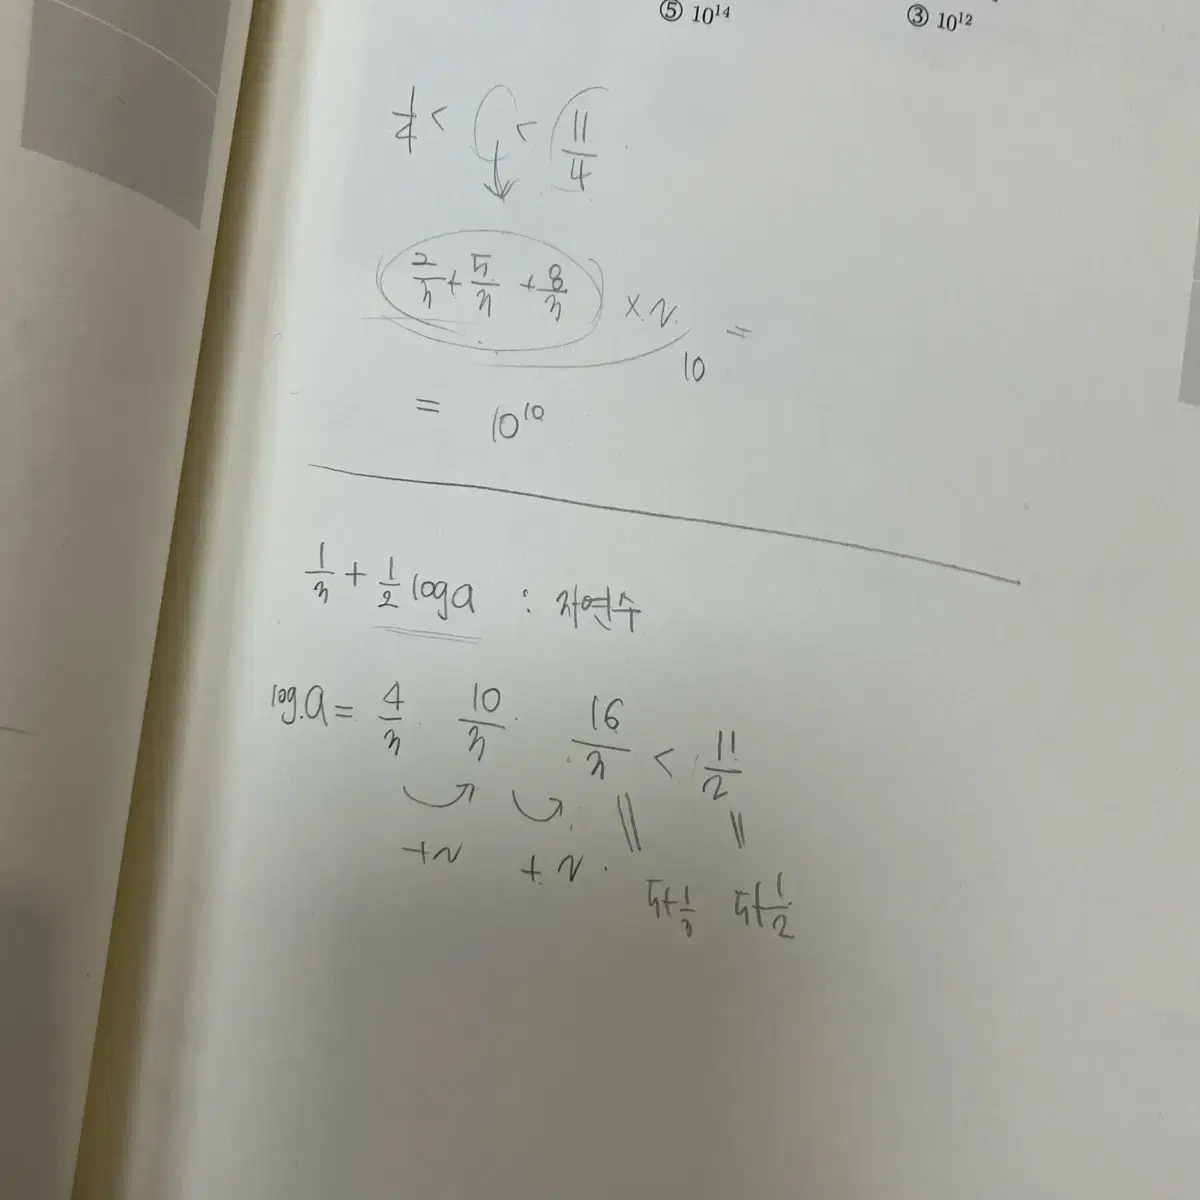 ⑤ 10¹⁴ ③ 10¹²
1/4 < < 11/4
(2/3 + 5/3 + 8/3) × 2. =
10
= 10¹⁰
1/3 + 1/2 log a : 자연수
log.a = 4/3 10/3 16/3 < 11/2
+2 +2. || ||
5+1/3 5+1/2